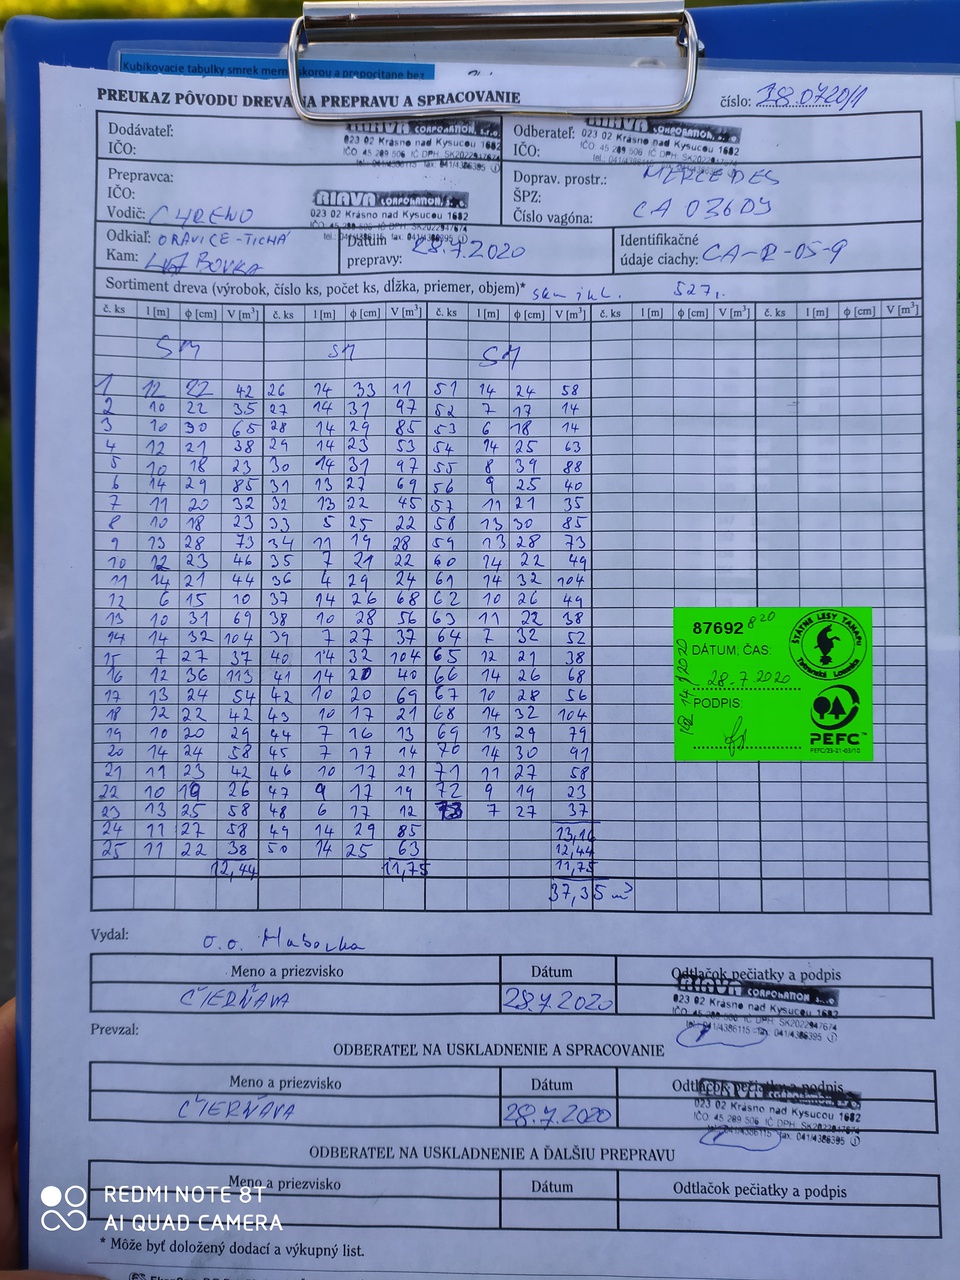 Kubikovacie tabulky smrek mer skorou a prepočítane bez
PREUKAZ PÔVODU DREVA NA PREPRAVU A SPRACOVANIE
číslo: 28.0720/1
Dodávateľ:
IČO:
RIAVA CORPORATION, s.r.o.
023 02 Krásno nad Kysucou 1682
IČO 45 289 506 IČ DPH: SK2022947674
Odberateľ:
IČO:
CORPORATION
023 02 Krásno nad Kysucou 1682
IČO: 45 289 506 IČ DPH: SK2022947674
Prepravca:
IČO:
Vodič: CYRENO
RIAVA CORPORATION, s.r.o.
023 02 Krásno nad Kysucou 1682
IČO: 45 289 506 IČ DPH: SK2022947674
Doprav. prostr.: MERCEDES
ŠPZ:
Číslo vagóna: CA 036DY
Odkiaľ: ORAVICE-TICHÁ
Kam:
Dátum
prepravy: 28.7.2020
Identifikačné
údaje ciachy: CA-R-05-9
Sortiment dreva (výrobok, číslo ks, počet ks, dĺžka, priemer, objem)*
č. ks l [m] ϕ [cm] V [m³] č. ks l [m] ϕ [cm] V [m³] č. ks l [m] ϕ [cm] V [m³] č. ks l [m] ϕ [cm] V [m³] č. ks l [m] ϕ [cm] V [m³]
SM SM SM
1 12 22 42 26 14 33 11 51 14 24 58
2 10 22 35 27 14 31 97 52 7 17 14
3 10 30 65 28 14 29 85 53 6 18 14
4 12 21 38 29 14 23 53 54 14 25 63
5 10 18 23 30 14 31 97 55 8 39 88
6 14 29 85 31 13 27 69 56 9 25 40
7 11 20 32 32 13 22 45 57 11 21 35
8 10 18 23 33 5 25 22 58 13 30 85
9 13 28 73 34 11 19 28 59 13 28 73
10 12 23 46 35 7 21 22 60 14 22 49
11 14 21 44 36 4 29 24 61 14 32 104
12 6 15 10 37 14 26 68 62 10 26 49
13 10 31 69 38 10 28 56 63 11 22 38
14 14 32 104 39 7 27 37 64 7 32 52
15 7 27 37 40 14 32 104 65 12 21 38
16 12 36 113 41 14 20 40 66 14 26 68
17 13 24 54 42 10 20 69 67 10 28 56
18 12 22 42 43 10 17 21 68 14 32 104
19 10 20 29 44 7 16 13 69 13 29 79
20 14 24 58 45 7 17 14 70 14 30 91
21 11 23 42 46 10 17 21 71 11 27 58
22 10 19 26 47 9 17 19 72 9 19 23
23 13 25 58 48 6 17 12 73 7 27 37
24 11 27 58 49 14 29 85 13,16
25 11 22 38 50 14 25 63 12,44
12,44 11,75 11,75
37,35 m³
87692 8 20
DÁTUM; ČAS:
28.7.2020
PODPIS:
ŠTÁTNE LESY TANAPU
Tatranská Lomnica
PEFC
PEFC/23-21-03/10
Vydal:
Meno a priezvisko Dátum Odtlačok pečiatky a podpis
ČIERŇAVA 28.7.2020
RIAVA CORPORATION s.r.o.
023 02 Krásno nad Kysucou 1682
IČO: 45 289 506 IČ DPH: SK2022947674
tel.: 041/4386115 fax: 041/4386395
Prevzal:
ODBERATEĽ NA USKLADNENIE A SPRACOVANIE
Meno a priezvisko Dátum Odtlačok pečiatky a podpis
ČIERŇAVA 28.7.2020
023 02 Krásno nad Kysucou 1682
IČO: 45 289 506 IČ DPH: SK2022947674
041/4386115 fax: 041/4386395
ODBERATEĽ NA USKLADNENIE A ĎALŠIU PREPRAVU
Meno a priezvisko Dátum Odtlačok pečiatky a podpis
* Môže byť doložený dodací a výkupný list.
REDMI NOTE 8T
AI QUAD CAMERA